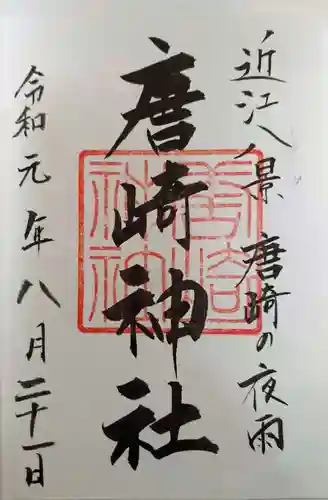 近江八景 唐崎の夜雨
唐崎神社
令和元年八月二十一日
唐崎
神社